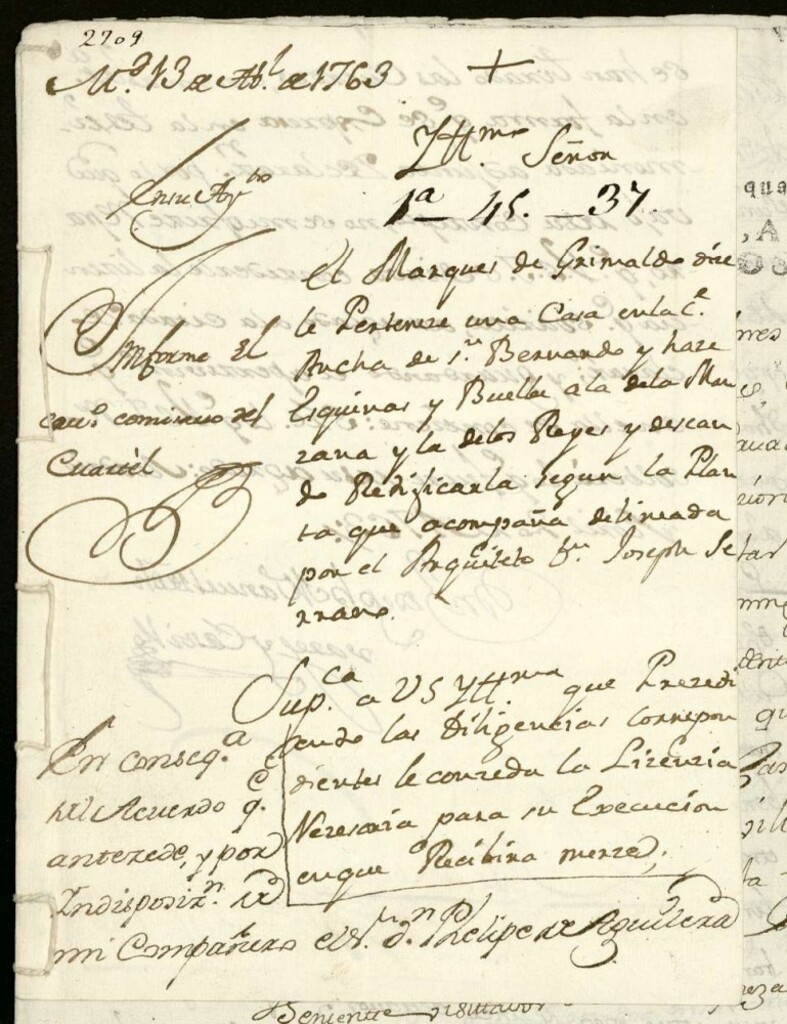 2709
M.ᵈ 13 de Ab.ˡ de 1763
Yll.ᵐᵒ Señor
En su Ay.ᵗᵒ
1ª 45. 37.
El Marques de Grimaldo dice
le Perteneze una Casa en la C.ᵉ
Ancha de s.ⁿ Bernardo y haze
Esquinas y Buelbe a la dela Man
zana y la delos Reyes y descan
do Redificarla segun la Plan
ta que acompaña delineada
por el Arquiteto D.ⁿ Joseph Se
rrano.
Informe El
cau.º comisario del
Cuartel
Sup.ᶜᵃ a VS Yll.ᵐᵃ que Prezedi
endo las Diligencias correspon
dientes le conzeda la Lizenzia
Nezesaria para su Execucion
en que Recibira merzed.
En conseq.ª
del Acuerdo q.ᵉ
antezede, y por
Indisposiz.ⁿ de
mi Compañero el S.ʳ d.ⁿ Phelipe de Aguilera
Theniente